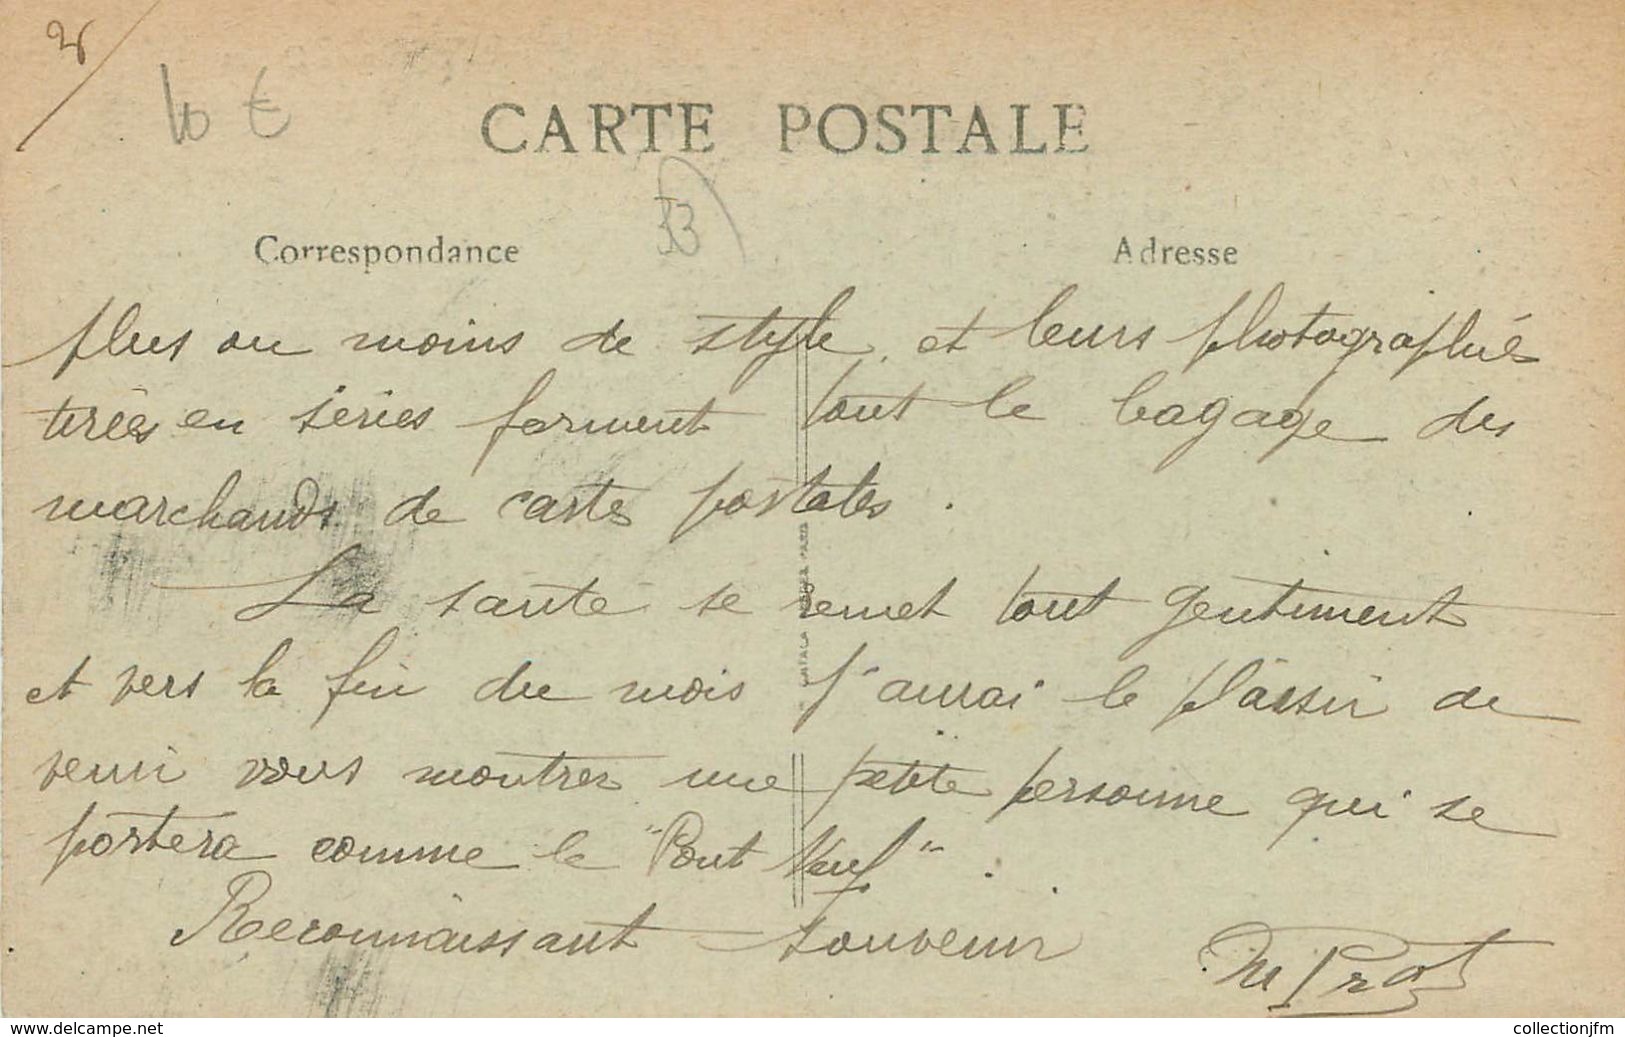 10 €
CARTE POSTALE
33
Correspondance
Adresse
plus ou moins de style, et leurs photographies
tirées en séries forment tout le bagage des
marchands de cartes postales.
La santé se remet tout gentiment
et vers la fin du mois j'aurai le plaisir de
venir vous montrer une petite personne qui se
portera comme le "Pont Neuf".
Reconnaissant souvenir
www.delcampe.net
collectionjfm